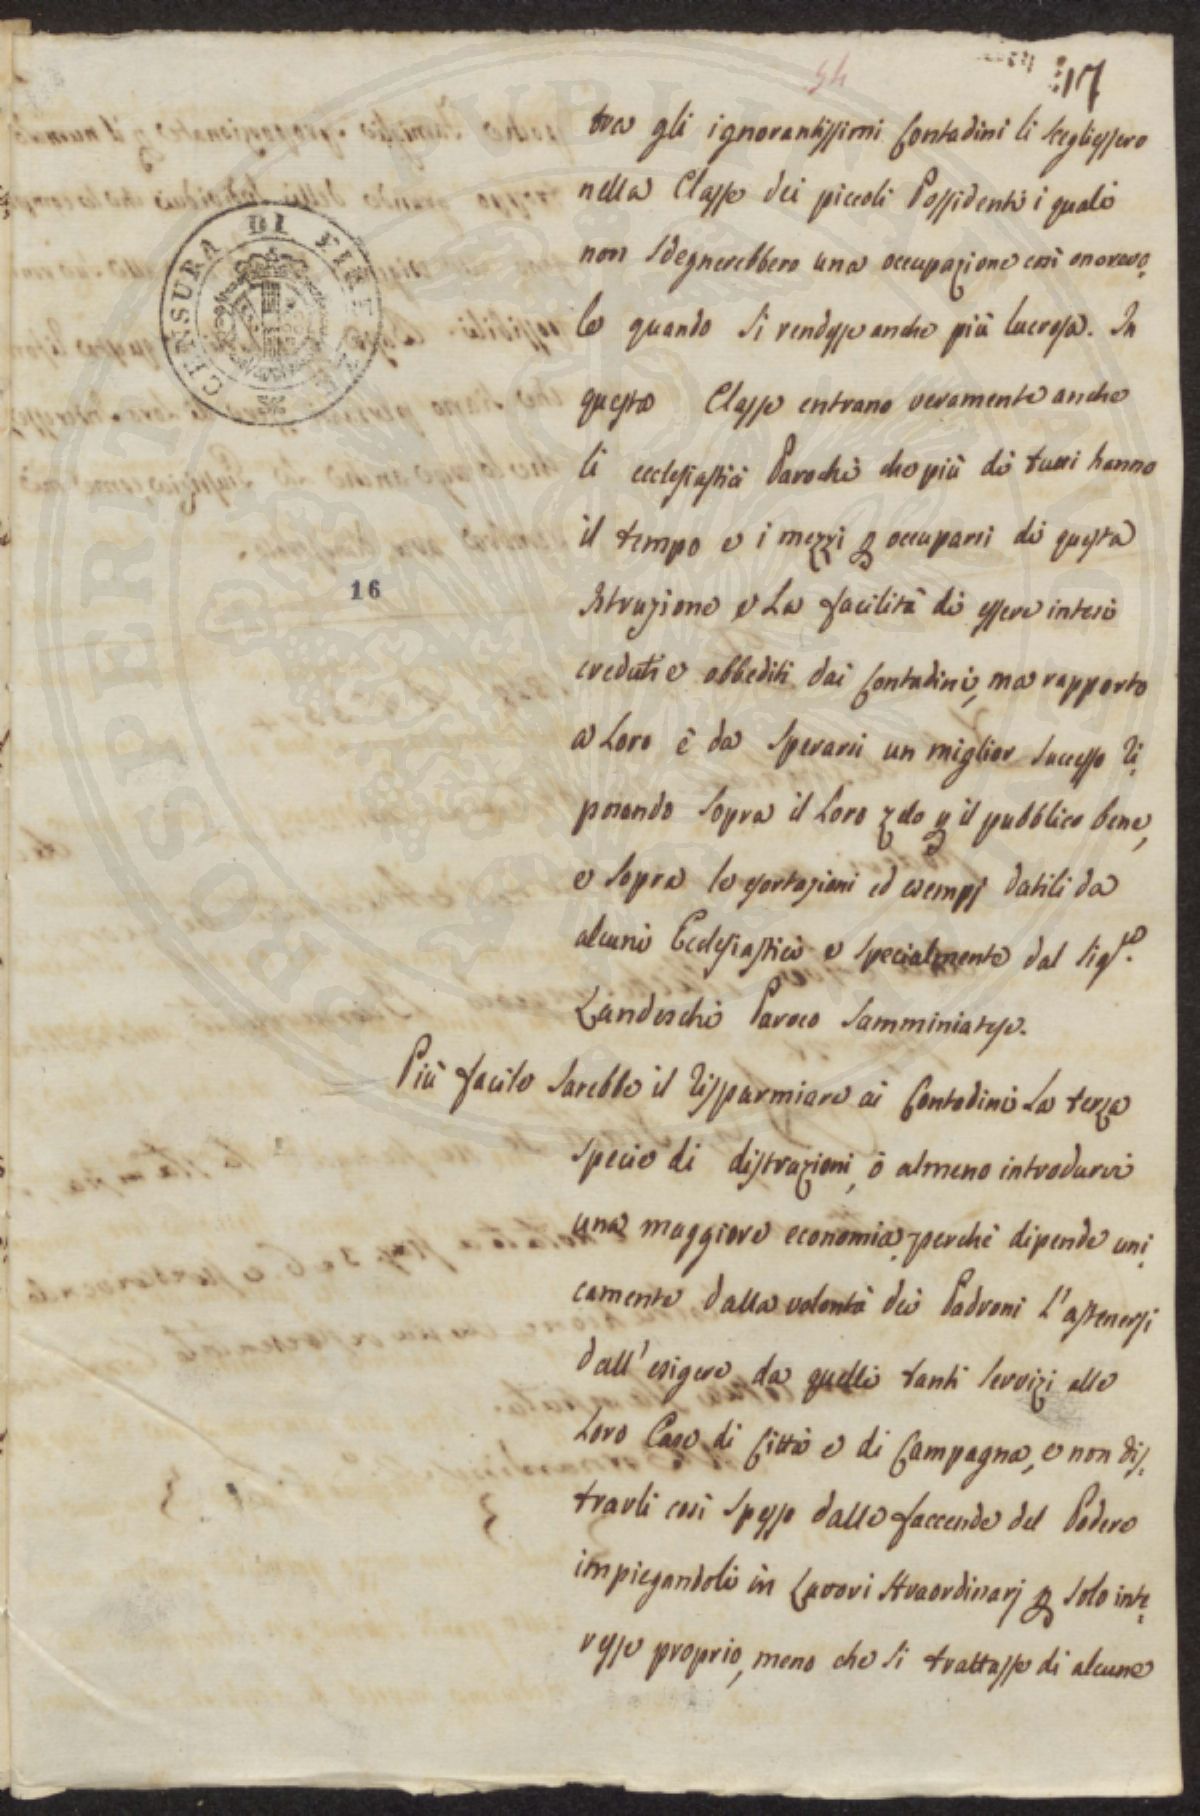 54
17
CENSURA DI FIRENZE
16
tra gli ignorantissimi Contadini li scegliessero
nella Classe dei piccoli Possidenti i quali
non sdegnerebbero una occupazione così onorevo=
le quando si rendesse anche più lucrosa. In
questa Classe entrano veramente anche
li ecclesiastici Parochi che più di tutti hanno
il tempo e i mezzi p occuparsi di questa
Istruzione e La facilità di essere intesi
creduti e obbediti dai Contadini, ma rapporto
a Loro è da sperarsi un miglior successo ri=
posando sopra il Loro zelo p il pubblico bene,
e sopra le esortazioni ed esempj datili da
alcuni Ecclesiastici e specialmente dal Sigr.
Landeschi Paroco Samminiatese.
Più facile sarebbe il risparmiare ai Contadini La terza
specie di distrazioni, ò almeno introdurvi
una maggiore economia, perchè dipende uni=
camente dalla volontà dei Padroni l'astenersi
dall'esigere da quelli tanti servizi alle
Loro Case di Città e di Campagna, e non dis=
trarli così spesso dalle faccende del Podere
impiegandoli in Lavori straordinarj p solo inte=
resse proprio, meno che si trattasse di alcune